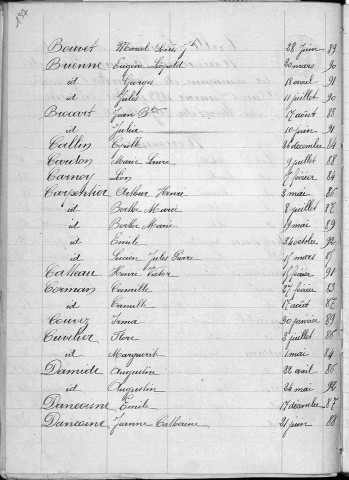 137
Bouvet Marcel Louis Jh 28 juin 89
Buenne Eugène Léopold 20 mars 90
id Georges 18 avril 91
id Jules 11 juillet 90
Brocart Jean Bte 17 août 88
id Julia 10 juin 91
Callin Cyrille 26 décembre 84
Carton Marie Laure 9 juillet 88
Carnoy Léon 7 février 84
Carpentier Arthur Henri 3 mai 86
id Berthe Marie 8 juillet 87
id Berthe Marie 19 mai 89
id Emile 24 octobre 92
id Lucien Jules Pierre 15 mars 85
Catteau Henri Victor 15 février 91
Cormans Camille 27 février 83
id Camille 17 août 87
Couvez Irma 30 janvier 89
Cuvelier Flore 3 juillet 86
id Marguerit 1 mai 84
Damide Augustin 22 avril 86
id Augustin 24 mai 92
Dancoisne Emile 17 décembre 87
Dancoine Jeanne Catherine 21 juin 88